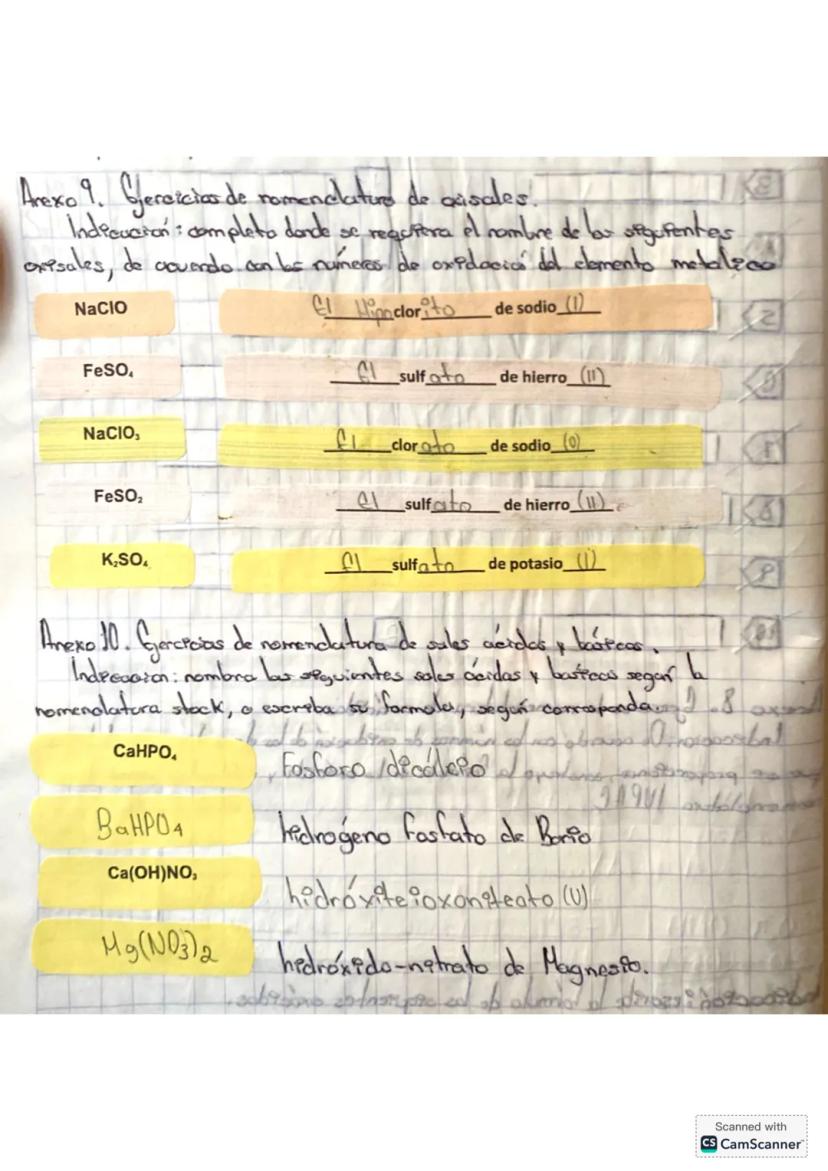 Anexo 9. Ejercicios de nomenclatura de oxisales.
Indicación: completa donde se requiera el nombre de las siguientes
oxisales, de acuerdo con los números de oxidació del elemento metálico
NaClO El Hipoclorito de sodio (I)
FeSO₄ El sulfato de hierro (II)
NaClO₃ El clorato de sodio (0)
FeSO₂ El sulfato de hierro (II)
K₂SO₄ El sulfato de potasio (I)
Anexo 10. Ejercicios de nomenclatura de sales ácidas y básicas.
Indicación: nombra las siguientes sales ácidas y básicas según la
nomenclatura stock, o escriba su formula, según corresponda.
CaHPO₄ Fosforo dicálcio
BaHPO4 hidrógeno fosfato de Bario
Ca(OH)NO₃ (V)
Mg(NO3)2 hidróxido-nitrato de Magnesio.
Scanned with
CS CamScanner